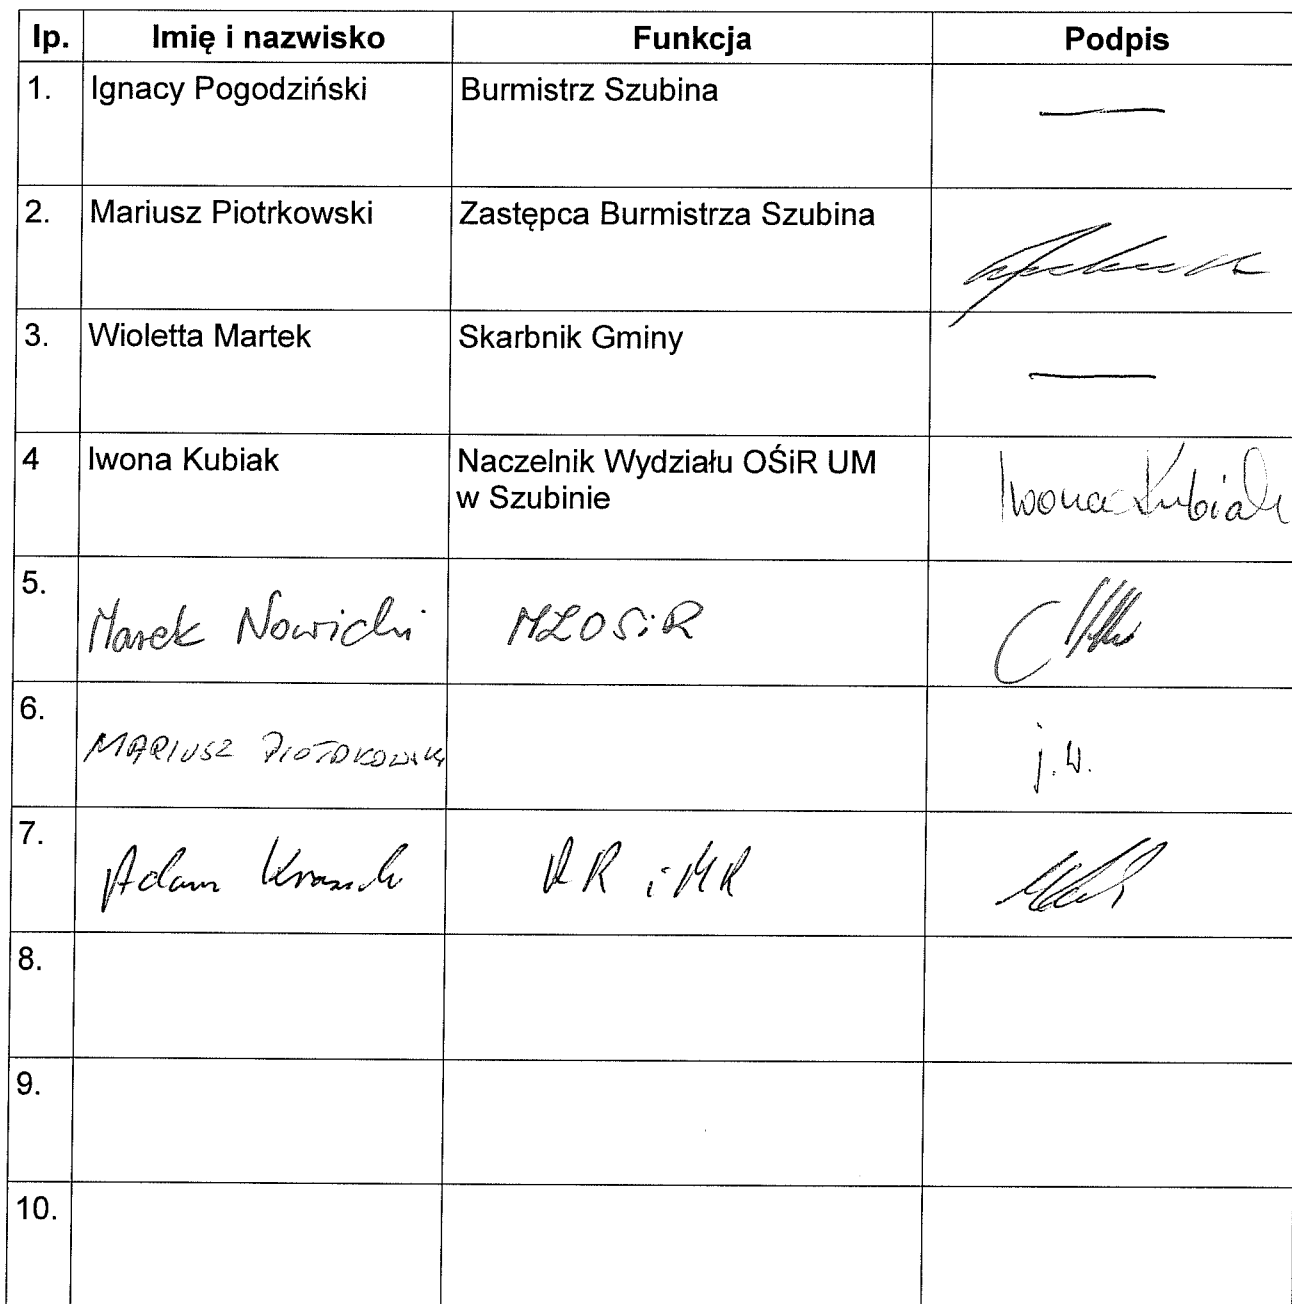 lp. Imię i nazwisko Funkcja Podpis
1. Ignacy Pogodziński Burmistrz Szubina —
2. Mariusz Piotrkowski Zastępca Burmistrza Szubina
3. Wioletta Martek Skarbnik Gminy —
4 Iwona Kubiak Naczelnik Wydziału OŚiR UM
w Szubinie Iwona Kubiak
5. Marek Nowicki MZOSiR
6. MARIUSZ PIOTRKOWSKI j.w.
7. Adam RR i MR
8.
9.
10.